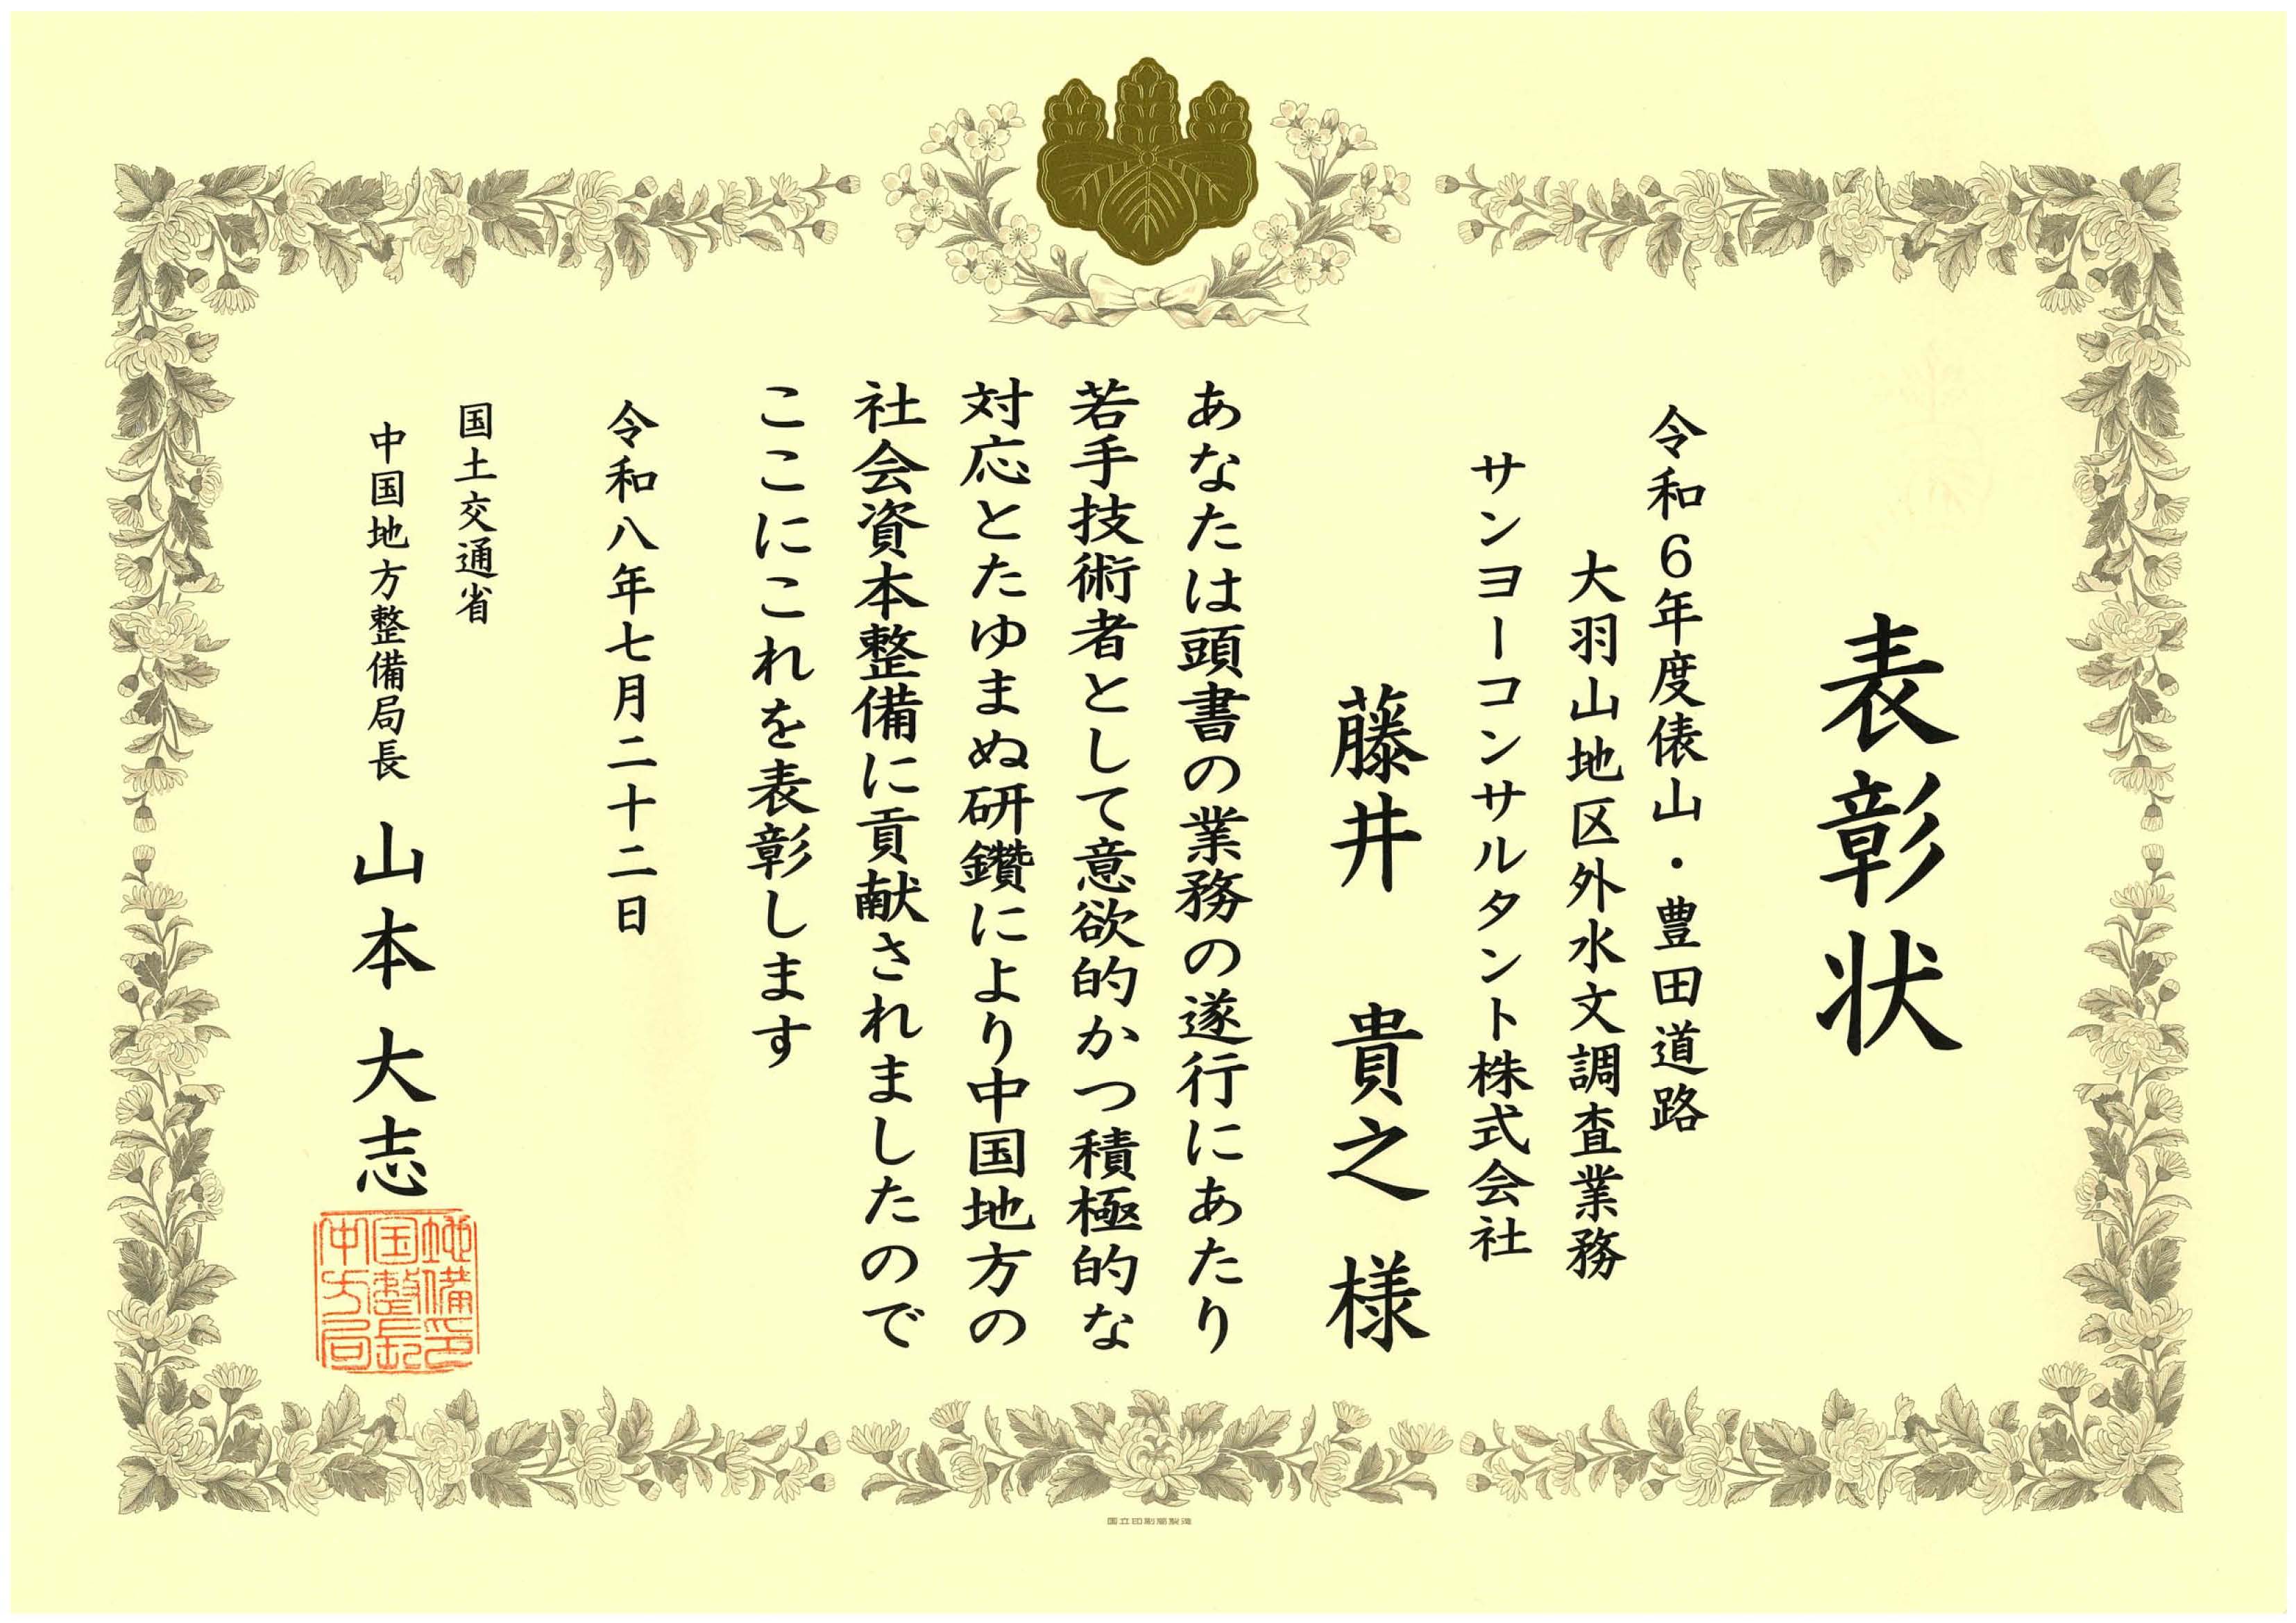 表彰状
令和6年度俵山・豊田道路
大羽山地区外水文調査業務
サンヨーコンサルタント株式会社
藤井 貴之 様
あなたは頭書の業務の遂行にあたり
若手技術者として意欲的かつ積極的な
対応とたゆまぬ研鑽により中国地方の
社会資本整備に貢献されましたので
ここにこれを表彰します
令和八年七月二十二日
国土交通省
中国地方整備局長 山本 大志
中国地方整備局長印
国立印刷局製造